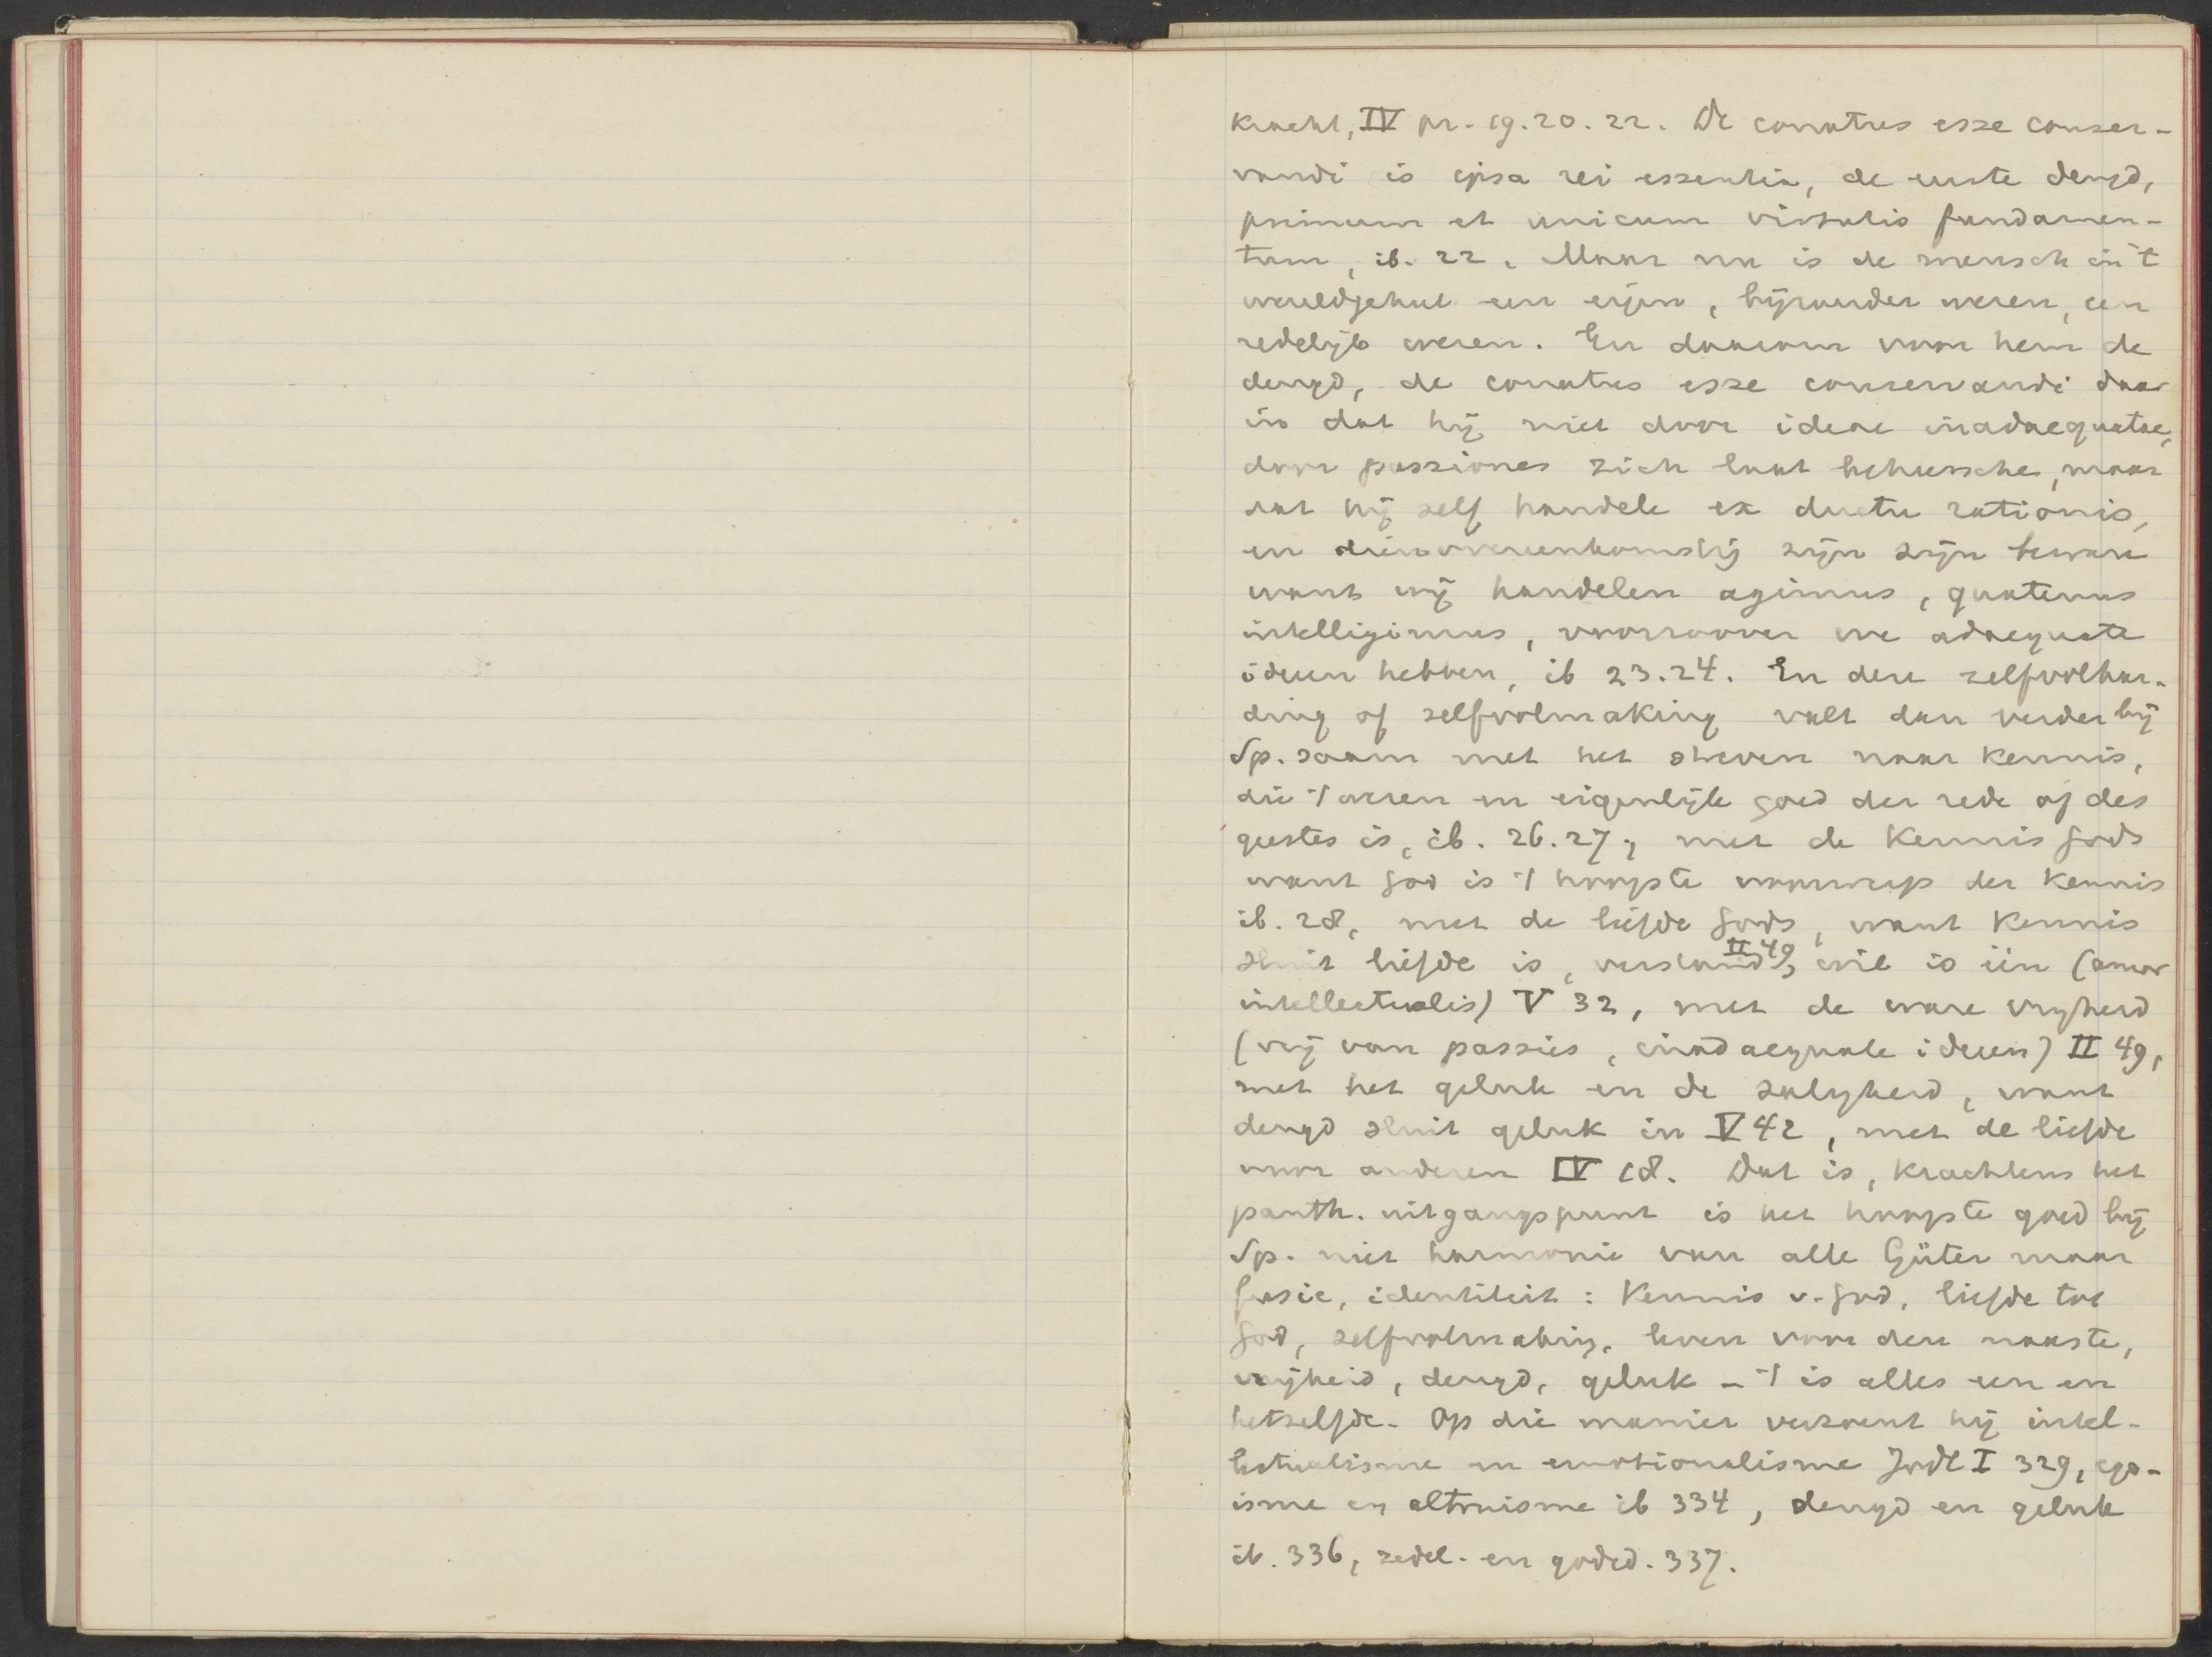 kracht, IV pr. 19. 20. 22. De conatus esse conser-
vandi is ipsa rei essentia, de eerste deugd,
primum et unicum virtutis fundamen-
tum, ib. 22. Maar nu is de mensch in 't
wereldgeheel een eigen, bijzonder wezen, een
redelijk wezen. En daarom voor hem de
deugd, de conatus esse conservandi daar
in dat hij niet door ideae inadaequatae,
door passiones zich laat beheersche, maar
dat hij zelf handele ex ductu rationis,
en dienovereenkomstig zijn zijn beware
want wij handelen agimus, quatenus
intelligimus, voorzoover we adaequate
ideeen hebben, ib 23. 24. En deze zelfvolhar-
ding of zelfvolmaking valt dan verder bij
Sp. saam met het streven naar kennis,
die 't wezen en eigenlijk goed der rede of des
geestes is, ib. 26. 27, met de kennis Gods
want God is 't hoogste voorwerp der kennis
ib. 28, met de liefde Gods, want kennis
sluit liefde is, verstand, II 49, wil is één (amor
intellectualis) V 32, met de ware vrijheid
(vrij van passies, inadaequate ideeen) II 49,
met het geluk en de zaligheid, want
deugd sluit geluk in V 42, met de liefde
voor anderen IV 18. Dat is, krachtens het
panth. uitgangspunt is het hoogste goed bij
Sp. niet harmonie van alle Güter maar
fusie, identiteit: kennis v. God, liefde tot
God, zelfvolmaking, leven voor den naaste,
vrijheid, deugd, geluk - 't is alles een en
hetzelfde. Op die manier verzoent hij intel-
lectualisme en emotionalisme Jodl I 329, ego-
isme en altruisme ib 334, deugd en geluk
ib. 336, zedel. en godsd. 337.